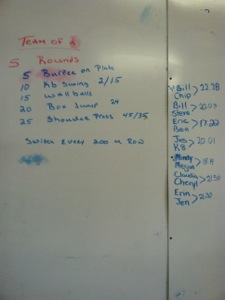 Team of 2
5 Rounds
5 Burpee on Plate
10 Kb Swing 2/15
15 Wall balls
20 Box Jump 24
25 Shoulder Press 45/35
Switch Every 200 m Row
Bill > 22:28
Chip
Bill > 20:03
Steve
Eric > 17:22
Ben
Jas > 20:01
KB
Mindy
Megan
Claudia > 21:30
Cheryl
Erin
Jen